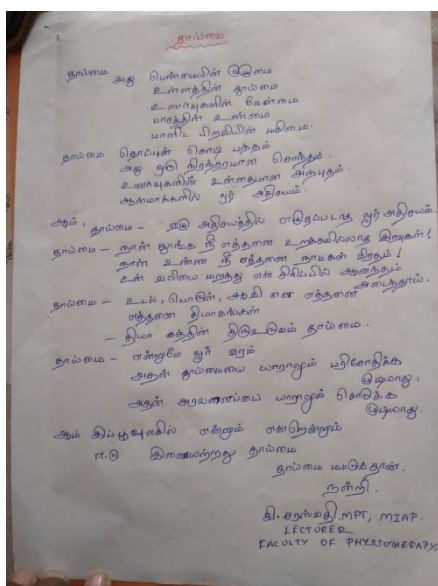 தாய்மை
தாய்மை அது பெண்மையின்
உள்ளத்தின் தூய்மை
உணர்வுகளின் மேன்மை
பாசத்தின் உண்மை
மானிட பிறவியின் மகிமை.
தாய்மை தொப்புள் கொடி பந்தம்
அது ஒரு நிரந்தரமான சொந்தம்.
உணர்வுகளின் உன்னதமான அற்புதம்.
ஆன்மாக்களில் ஓர் அதிசயம்.
ஆம், தாய்மை - ஏழு அதிசயத்தில் எடுபடாத ஓர் அதிசயம்.
தாய்மை - நான் தூங்க நீ எத்தனை உறக்கமில்லாத இரவுகள்!
நான் உண்ண நீ எத்தனை நாட்கள் விரதம்!
உன் வலியை மறந்து என் சிரிப்பில் ஆனந்தம்
அடைந்தாய்.
தாய்மை - உடல், பொருள், ஆவி என எத்தனை
எத்தனை தியாகங்கள்
- தியாகத்தின் திருஉருவம் தாய்மை.
தாய்மை - என்றுமே ஓர் வரம்
அதன் தூய்மையை யாராலும் பரிசோதிக்க
முடியாது.
அதன் அரவணைப்பை யாராலும் கொடுக்க
முடியாது.
ஆம் இப்பூவுலகில் என்றும் என்றென்றும்
ஈடு இணையற்றது தாய்மை
தாய்மை மட்டுந்தான்.
நன்றி.
கி.சரஸ்வதி.MPT, MIAP.
LECTURER
FACULTY OF PHYSIOTHERAPY.